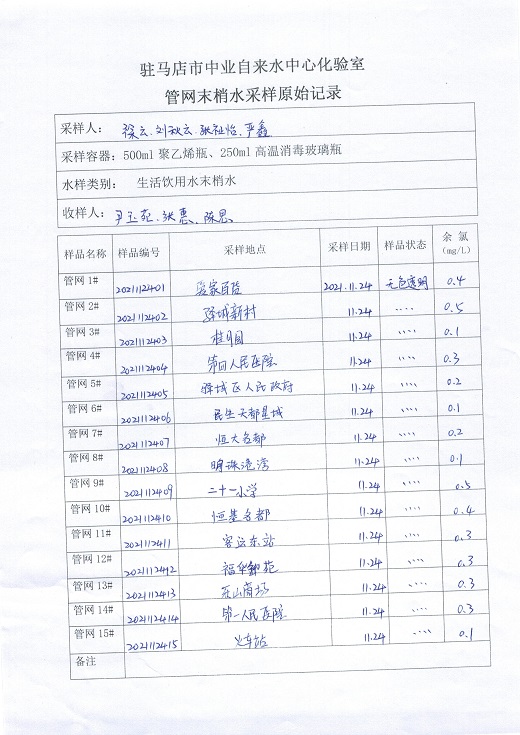 驻马店市中业自来水中心化验室
管网末梢水采样原始记录
采样人： 徐云、刘秋云、张祉怡、严鑫
采样容器：500ml 聚乙烯瓶、250ml 高温消毒玻璃瓶
水样类别： 生活饮用水末梢水
收样人： 尹玉苑、张惠、陈思
样品名称 样品编号 采样地点 采样日期 样品状态 余氯(mg/L)
管网 1# 2021112401 家百货 2021.11.24 无色透明 0.4
管网 2# 2021112402 驿城新村 11.24 〃〃 0.5
管网 3# 2021112403 桂园 11.24 〃〃 0.1
管网 4# 2021112404 第四人民医院 11.24 〃〃 0.3
管网 5# 2021112405 驿城区人民政府 11.24 〃〃 0.2
管网 6# 2021112406 民生天都星城 11.24 〃〃 0.1
管网 7# 2021112407 恒大名都 11.24 〃〃 0.2
管网 8# 2021112408 明珠港湾 11.24 〃〃 0.1
管网 9# 2021112409 二十一小学 11.24 〃〃 0.5
管网 10# 2021112410 恒基名都 11.24 〃〃 0.4
管网 11# 2021112411 客运东站 11.24 〃〃 0.3
管网 12# 2021112412 福华御苑 11.24 〃〃 0.3
管网 13# 2021112413 乐山商场 11.24 〃〃 0.3
管网 14# 2021112414 第一人民医院 11.24 〃〃 0.3
管网 15# 2021112415 火车站 11.24 〃〃 0.1
备注